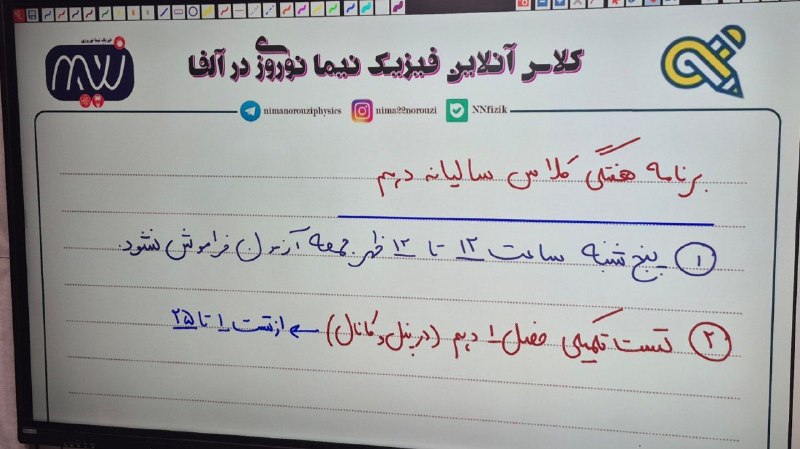 فیزیک نیما نوروزی
کلاس آنلاین فیزیک نیما نوروزی در آلفا
nimanorouziphysics nima22norouzi NNfizik
برنامه هفتگی کلاس سالیانه دهم
۱ پنج شنبه ساعت ۱۲ تا ۱۲ ظهر جمعه آزمون فراموش نشود.
۲ تست تکمیلی فصل ۱ دهم (در پنل و کانال) ← از تست ۱ تا ۲۵